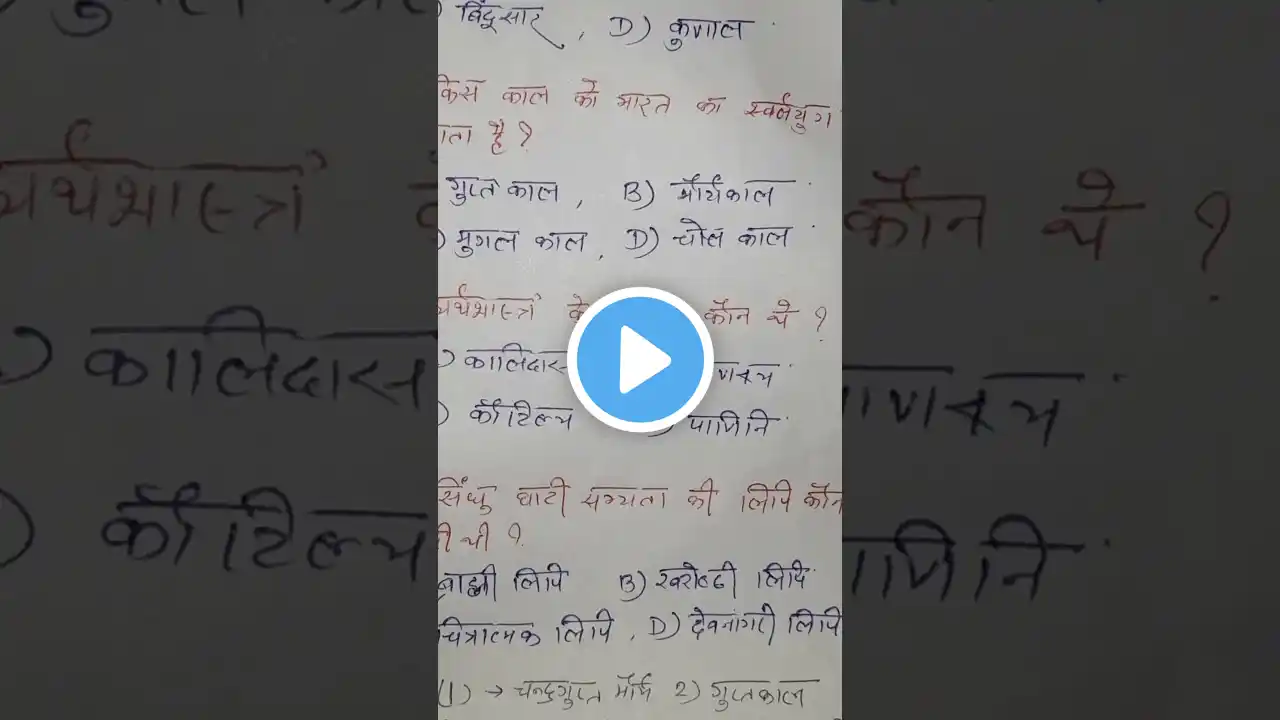 बिंदुसार, D) कुणाल
किस काल को भारत का स्वर्णयुग
ाता है ?
गुप्त काल, B) मौर्यकाल
) मुगल काल, D) चोल काल
अर्थशास्त्र के कौन थे ?
) कालिदास णक्य
) कौटिल्य पाणिनि
सिंधु घाटी सभ्यता की लिपि कौन
ी थी ?
ब्राह्मी लिपि B) खरोष्ठी लिपि
चित्रात्मक लिपि, D) देवनागरी लिपि
(1) → चन्द्रगुप्त मौर्य 2) गुप्तकाल